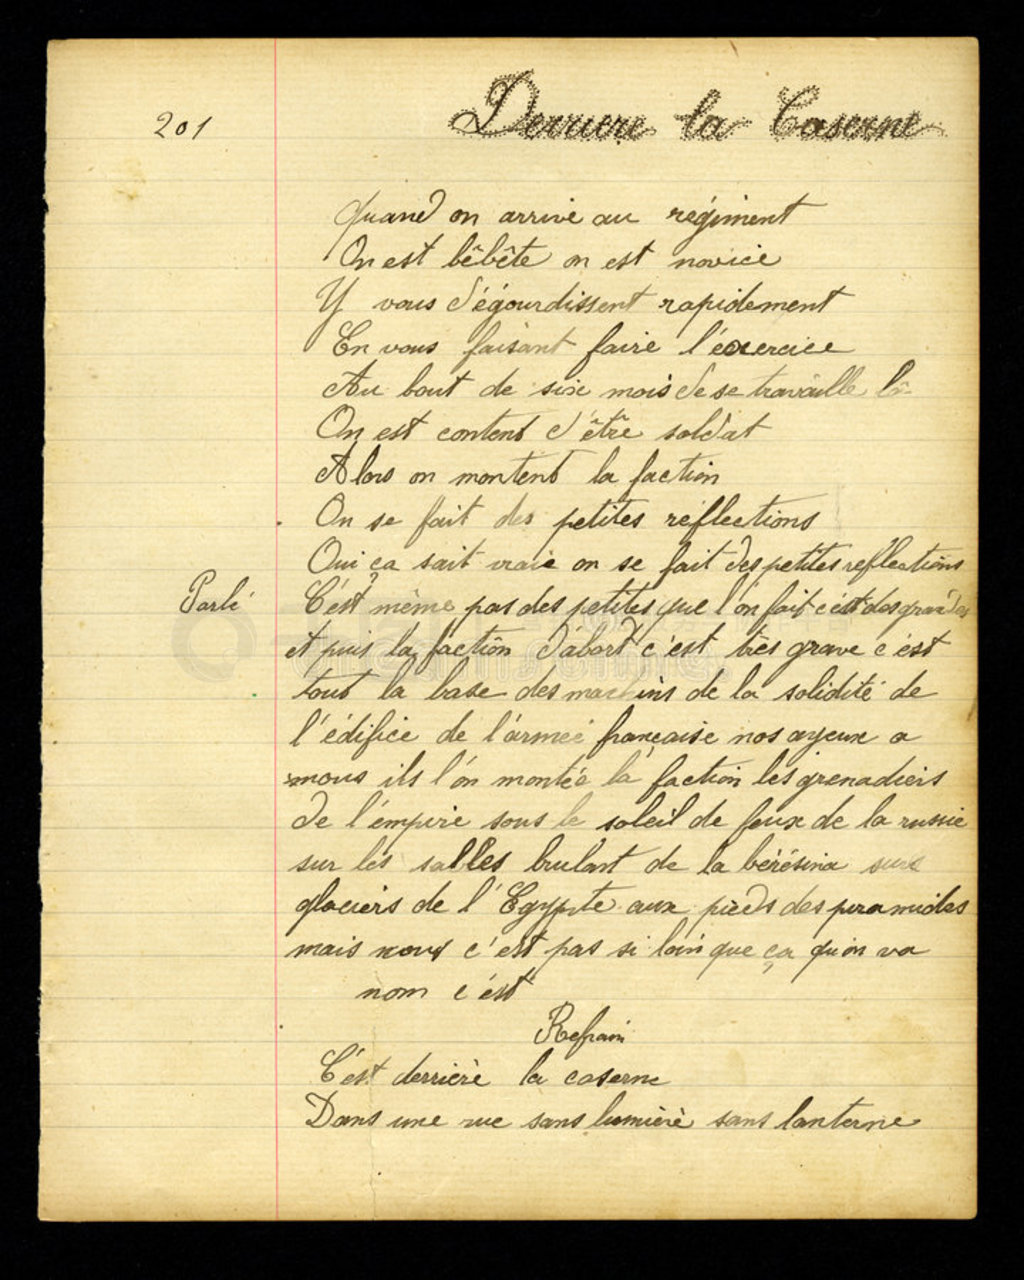 201
Derriere la Caserne
Quand on arrive au regiment
On est bêbête on est novice
Y vous dégourdissent rapidement
En vous faisant faire l'éxercice
Au bout de six mois de se travaille là
On est contents d'être soldat
Alors on montent la faction
On se fait des petites reflections
Oui ça sait vraie on se fait des petites reflections
Parlé
C'est même pas des petites que l'on fait c'est des grandes
et puis la faction d'abort c'est très grave c'est
tout la base des de la solidité de
l'édifice de l'armée française nos ayeux a
nous ils l'on montée la faction les grenadiers
de l'empire sous le soleil de feux de la russie
sur les salles brulant de la bérésina sur
glaciers de l'Egypte aux pieds des piramides
mais nous c'est pas si loin que ça qu'on va
nom c'est
Refrain
C'est derrière la caserne
Dans une rue sans lumière sans lanterne